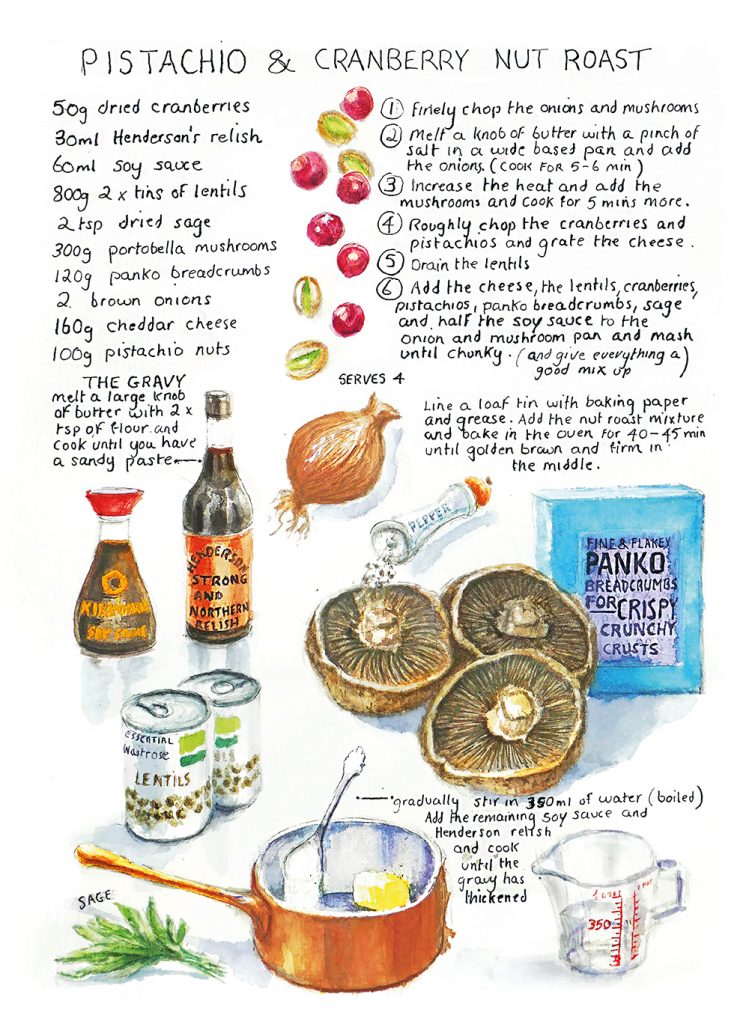 PISTACHIO & CRANBERRY NUT ROAST
50g dried cranberries
30ml Henderson's relish
60ml soy sauce
800g 2 x tins of lentils
2 tsp dried sage
300g portobella mushrooms
120g panko breadcrumbs
2 brown onions
160g cheddar cheese
100g pistachio nuts
① Finely chop the onions and mushrooms
② Melt a knob of butter with a pinch of
salt in a wide based pan and add
the onions. (cook for 5-6 min)
③ Increase the heat and add the
mushrooms and cook for 5 mins more.
④ Roughly chop the cranberries and
pistachios and grate the cheese.
⑤ Drain the lentils
⑥ Add the cheese, the lentils, cranberries,
pistachios, panko breadcrumbs, sage
and half the soy sauce to the
onion and mushroom pan and mash
until chunky. (and give everything a)
good mix up
SERVES 4
Line a loaf tin with baking paper
and grease. Add the nut roast mixture
and bake in the oven for 40-45 min
until golden brown and firm in
the middle.
THE GRAVY
melt a large knob
of butter with 2 x
tsp of flour and
cook until you have
a sandy paste
PEPPER
HENDERSON
STRONG
AND
NORTHERN
RELISH
SOY SAUCE
FINE & FLAKEY
PANKO
BREADCRUMBS
FOR CRISPY
CRUNCHY
CRUSTS
ESSENTIAL
Waitrose
LENTILS
gradually stir in 350ml of water (boiled)
Add the remaining soy sauce and
Henderson relish
and cook
until the
gravy has
thickened
SAGE
350